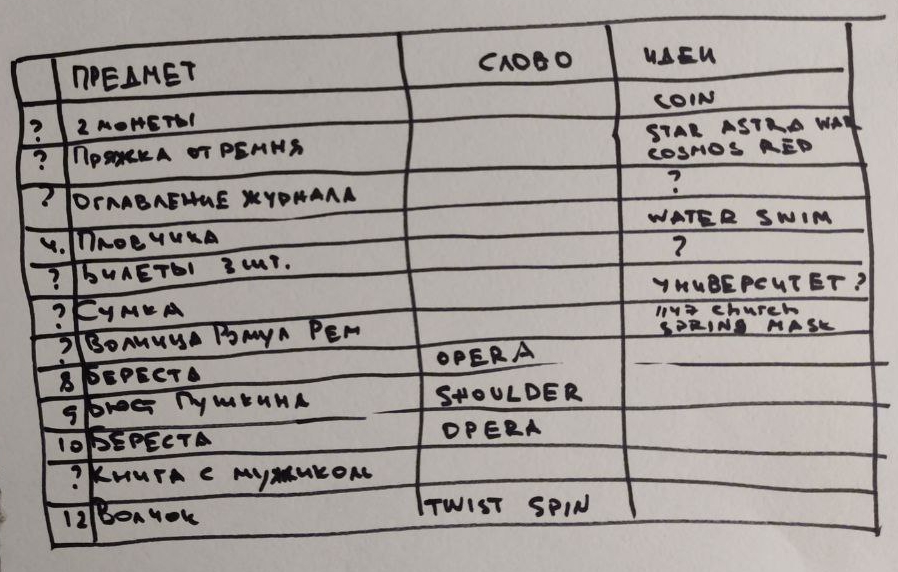 ПРЕДМЕТ СЛОВО ИДЕИ
? 2 МОНЕТЫ COIN
? ПРЯЖКА ОТ РЕМНЯ STAR ASTRA WAR
COSMOS RED
? ОГЛАВЛЕНИЕ ЖУРНАЛА ?
4. ПЛОВЧИХА WATER SWIM
? БИЛЕТЫ 3 ШТ. ?
? СУМКА УНИВЕРСИТЕТ?
? ВОЛЧИЦА РЕМ 1147 church
SPRING MASK
8 БЕРЕСТА OPERA
9 БЮСТ ПУШКИНА SHOULDER
10 БЕРЕСТА OPERA
? КНИГА С МУЖИКОМ
12 ВОЛЧОК TWIST SPIN